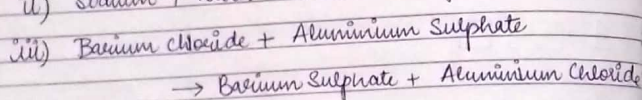 ii) Sodium
iii) Barium Chloride + Aluminium Sulphate
→ Barium Sulphate + Aluminium Chloride